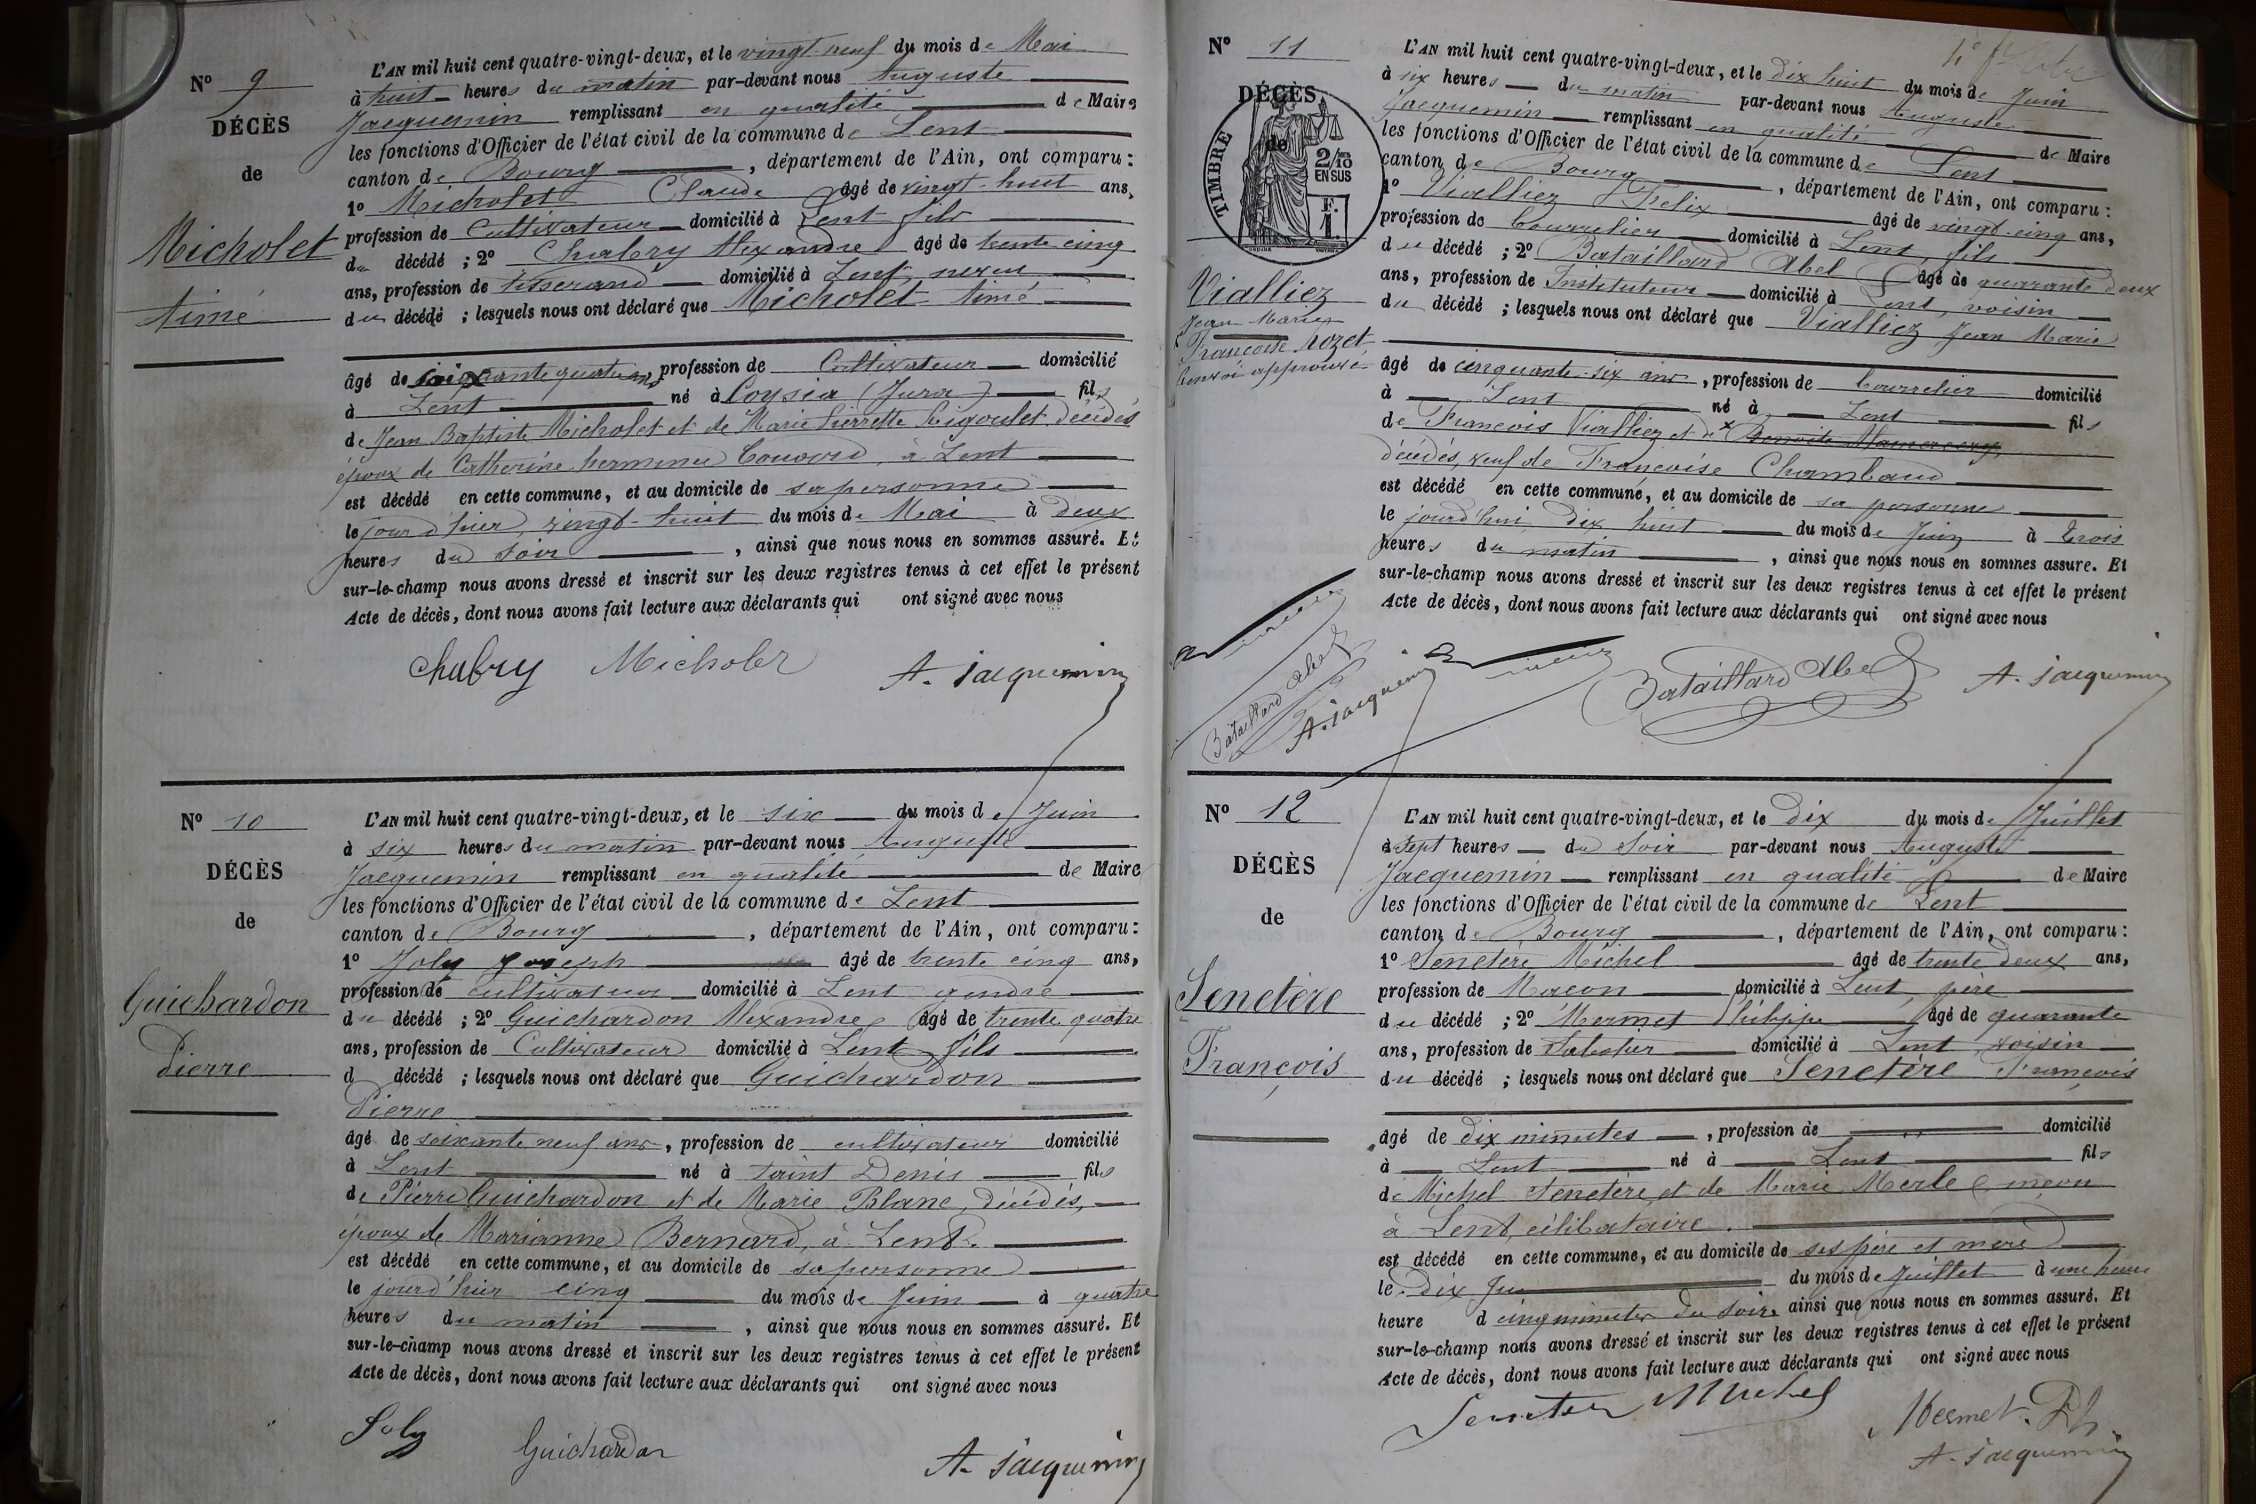 Nº 9
DÉCÈS
de
Micholet
Aimé
L'AN mil huit cent quatre-vingt-deux, et le vingt-neuf du mois de Mai
à huit heures du matin par-devant nous Auguste
Jacquemin remplissant en qualité de Maire
les fonctions d'Officier de l'état civil de la commune de Lent
canton de Bourg, département de l'Ain, ont comparu :
1º Micholet Claude âgé de vingt-huit ans,
profession de Cultivateur domicilié à Lent fils
du décédé ; 2º Chabry Alexandre âgé de trente cinq
ans, profession de tisserand domicilié à Lent, neveu
du décédé ; lesquels nous ont déclaré que Micholet Aimé
âgé de soixante quatre ans, profession de Cultivateur domicilié
à Lent né à Coysia (Jura) fils
de Jean Baptiste Micholet et de Marie Pierrette Rigoulet décédés
époux de Catherine hermance Couvert, à Lent
est décédé en cette commune, et au domicile de sa personne
le jour d'hier, vingt-huit du mois de Mai à deux
heures du soir, ainsi que nous nous en sommes assuré. Et
sur-le-champ nous avons dressé et inscrit sur les deux registres tenus à cet effet le présent
Acte de décès, dont nous avons fait lecture aux déclarants qui ont signé avec nous
Chabry Micholet A. Jacquemin
Nº 10
DÉCÈS
de
Guichardon
Pierre
L'AN mil huit cent quatre-vingt-deux, et le six du mois de Juin
à six heures du matin par-devant nous Auguste
Jacquemin remplissant en qualité de Maire
les fonctions d'Officier de l'état civil de la commune de Lent
canton de Bourg, département de l'Ain, ont comparu :
1º Joly Joseph âgé de trente cinq ans,
profession de cultivateur domicilié à Lent gendre
du décédé ; 2º Guichardon Alexandre âgé de trente quatre
ans, profession de Cultivateur domicilié à Lent fils
d décédé ; lesquels nous ont déclaré que Guichardon
Pierre
âgé de soixante neuf ans, profession de cultivateur domicilié
à Lent né à Saint Denis fils
de Pierre Guichardon et de Marie Blanc, décédés,
époux de Marianne Bernard, à Lent.
est décédé en cette commune, et au domicile de sa personne
le jourd'hier cinq du mois de Juin à quatre
heures du matin, ainsi que nous nous en sommes assuré. Et
sur-le-champ nous avons dressé et inscrit sur les deux registres tenus à cet effet le présent
Acte de décès, dont nous avons fait lecture aux déclarants qui ont signé avec nous
Joly Guichardon A. Jacquemin
Nº 11
DÉCÈS
de
TIMBRE
2/10
EN SUS
F.
1.
Vialliez
Jean Marie
x Françoise Rozet
renvoi approuvé
L'AN mil huit cent quatre-vingt-deux, et le dix huit du mois de Juin
à six heures du matin par-devant nous Auguste
Jacquemin remplissant en qualité de Maire
les fonctions d'Officier de l'état civil de la commune de Lent
canton de Bourg, département de l'Ain, ont comparu :
1º Vialliez Félix âgé de vingt-cinq ans,
profession de bourrelier domicilié à Lent, fils
du décédé ; 2º Bataillard Abel âgé de quarante deux
ans, profession de Instituteur domicilié à Lent, voisin
du décédé ; lesquels nous ont déclaré que Vialliez Jean Marie
âgé de cinquante-six ans, profession de bourrelier domicilié
à Lent né à Lent fils
de François Vialliez et de x Benoite
décédés, veuf de Françoise Chambaud
est décédé en cette commune, et au domicile de sa personne
le jourd'hui dix huit du mois de Juin à trois
heures du matin, ainsi que nous nous en sommes assuré. Et
sur-le-champ nous avons dressé et inscrit sur les deux registres tenus à cet effet le présent
Acte de décès, dont nous avons fait lecture aux déclarants qui ont signé avec nous
Bataillard Abel
A. Jacquemin
Bataillard Abel A. Jacquemin
Nº 12
DÉCÈS
de
Senetère
François
L'AN mil huit cent quatre-vingt-deux, et le dix du mois de Juillet
à sept heures du soir par-devant nous Auguste
Jacquemin remplissant en qualité de Maire
les fonctions d'Officier de l'état civil de la commune de Lent
canton de Bourg, département de l'Ain, ont comparu :
1º Senetère Michel âgé de trente deux ans,
profession de Maçon domicilié à Lent, père
du décédé ; 2º Mermet Philippe âgé de quarante
ans, profession de Sabotier domicilié à Lent voisin
du décédé ; lesquels nous ont déclaré que Senetère François
âgé de dix minutes, profession de domicilié
à Lent né à Lent fils
de Michel Senetère et de Marie Merle
à Lent, célibataire.
est décédé en cette commune, et au domicile de ses père et mère
le dix Ju du mois de Juillet à une heure
heure d cinq minutes du soir, ainsi que nous nous en sommes assuré. Et
sur-le-champ nous avons dressé et inscrit sur les deux registres tenus à cet effet le présent
Acte de décès, dont nous avons fait lecture aux déclarants qui ont signé avec nous
Michel Mermet. Ph
A. Jacquemin